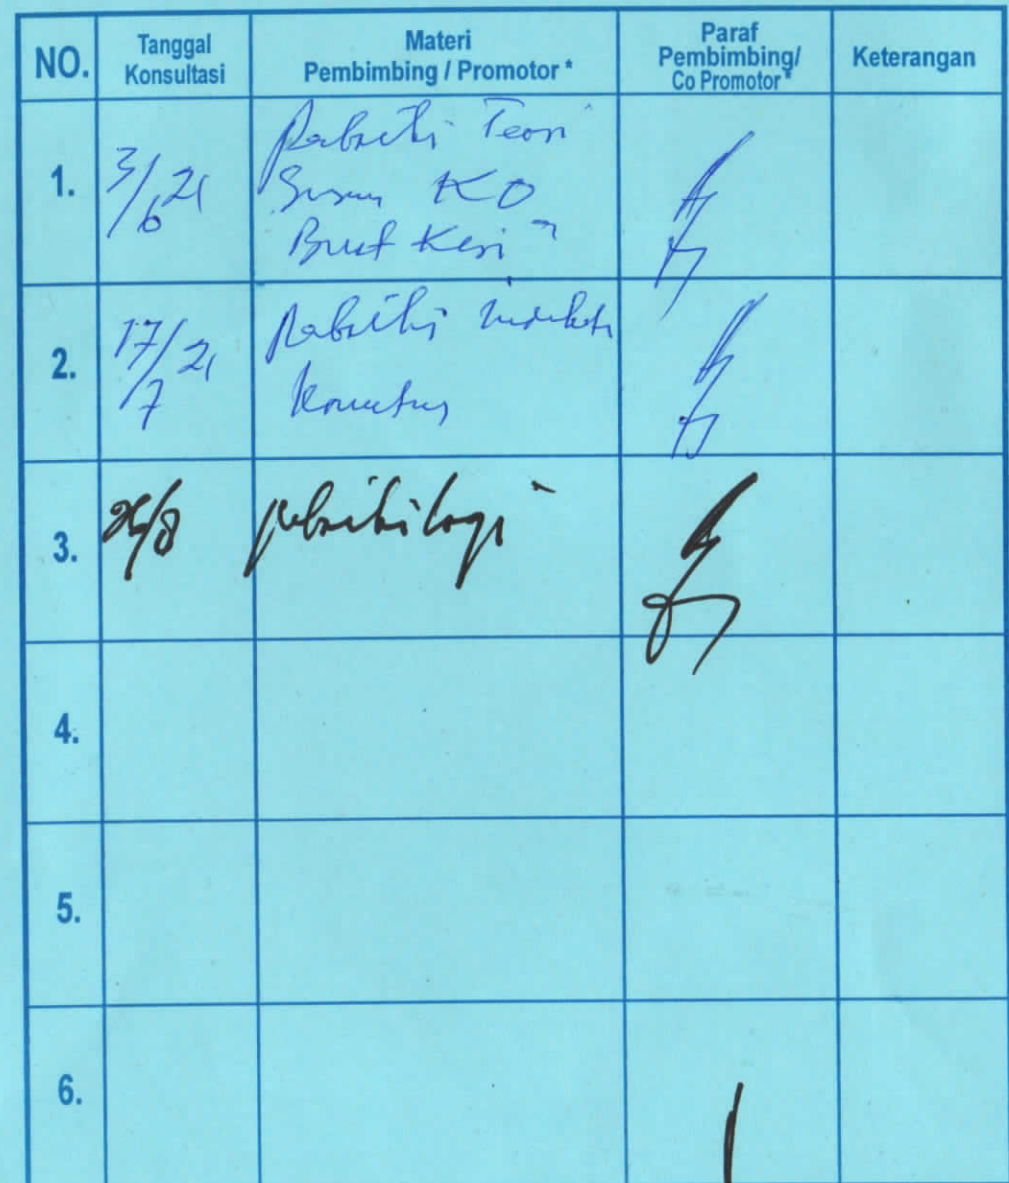 NO.
Tanggal
Konsultasi
Materi
Pembimbing / Promotor *
Paraf
Pembimbing/
Co Promotor *
Keterangan
1.
3/6 21
Perbaiki Teori
Susun KO
Buat
2.
17/7 21
Perbaiki
3.
perbaiki lagi
4.
5.
6.